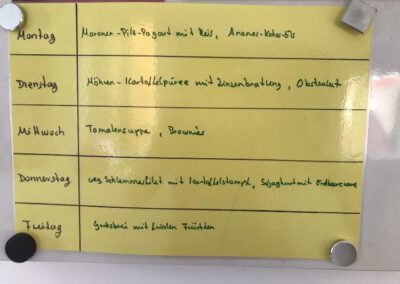 Montag Maronen-Pilz-Ragout mit Reis, Ananas-Kokos-Eis
Dienstag Möhren-Kartoffelpüree mit Linsenbratling, Obstsalat
Mittwoch Tomatensuppe, Brownies
Donnerstag veg. Schlemmerfilet mit Kartoffelstampf, Sojaghurt mit Erdbeercreme
Freitag Griesbrei mit frischen Früchten